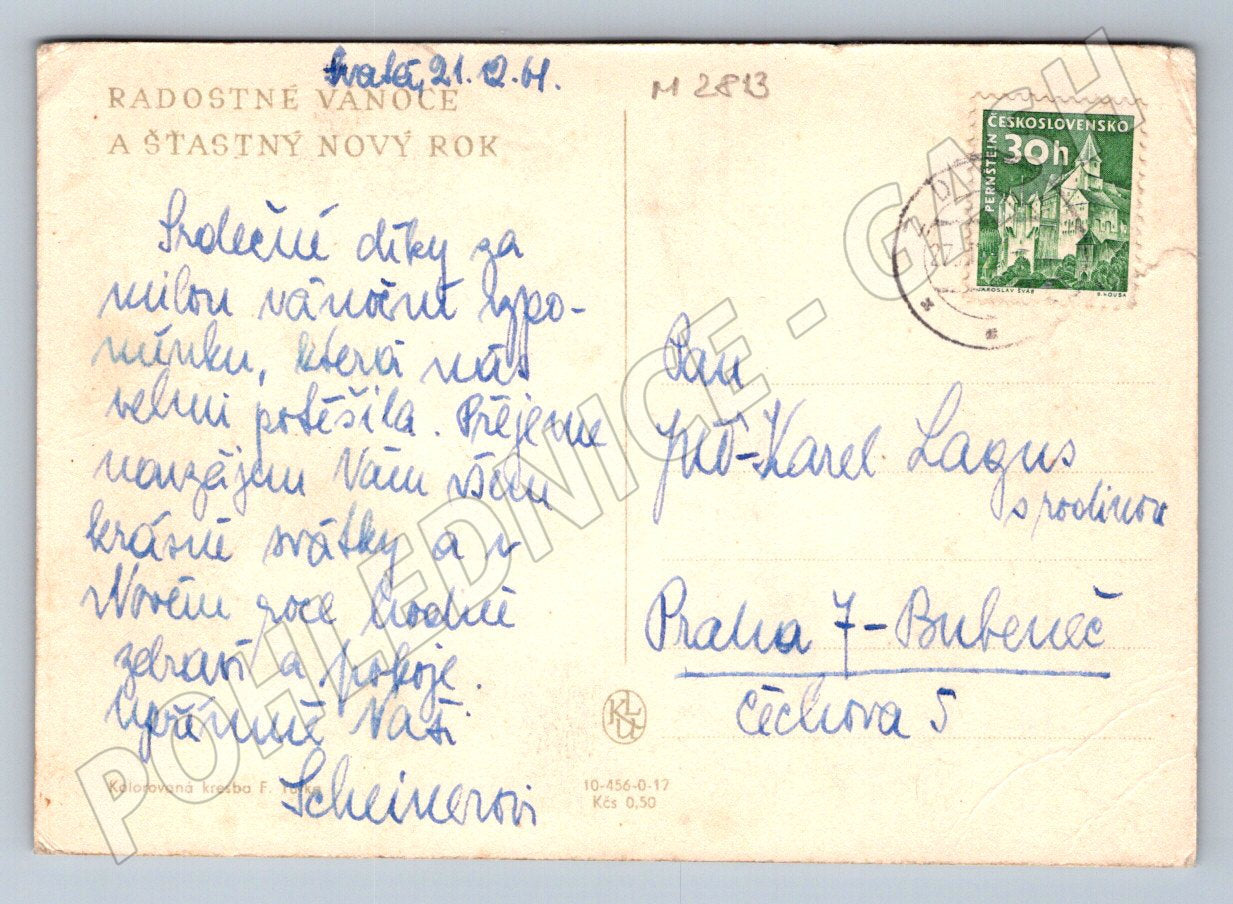 Svatá, 21.12.61.
M 2813
RADOSTNÉ VÁNOCE
A ŠŤASTNÝ NOVÝ ROK
Srdečné díky za
milou vánoční vzpo-
mínku, která nás
velmi potěšila. Přejeme
navzájem Vám všem
krásné svátky a v
Novém roce hodně
zdraví a pokoje.
Upřímně Vaši
Scheinerovi
Kolorovaná kresba F.
10-456-0-17
Kčs 0,50
ČESKOSLOVENSKO
30h
PERNŠTEJN
JAROSLAV ŠVÁB
Pan
JUDr Karel Lagus
s rodinou
Praha 7-Bubeneč
Čechova 5
POHLEDNICE - GASH